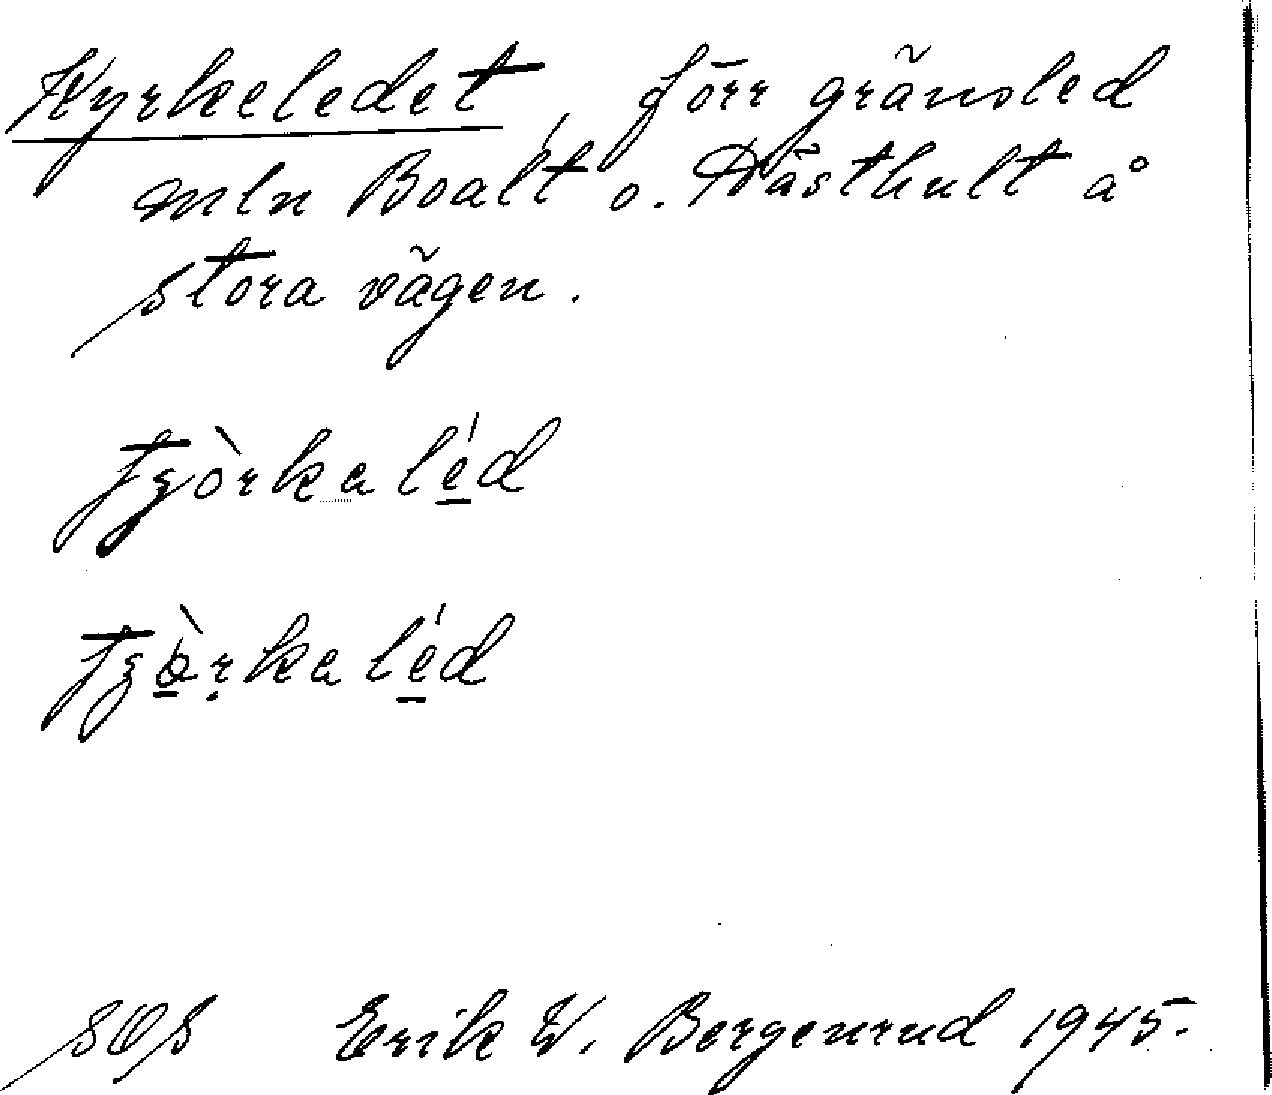 Kyrkeledet, förr gränsled
mln Boalt o. Hästhult å
stora vägen.
tʒòrka léd
tʒò̱ṛka lé̱d
SOS Erik W. Bergenrud 1945.